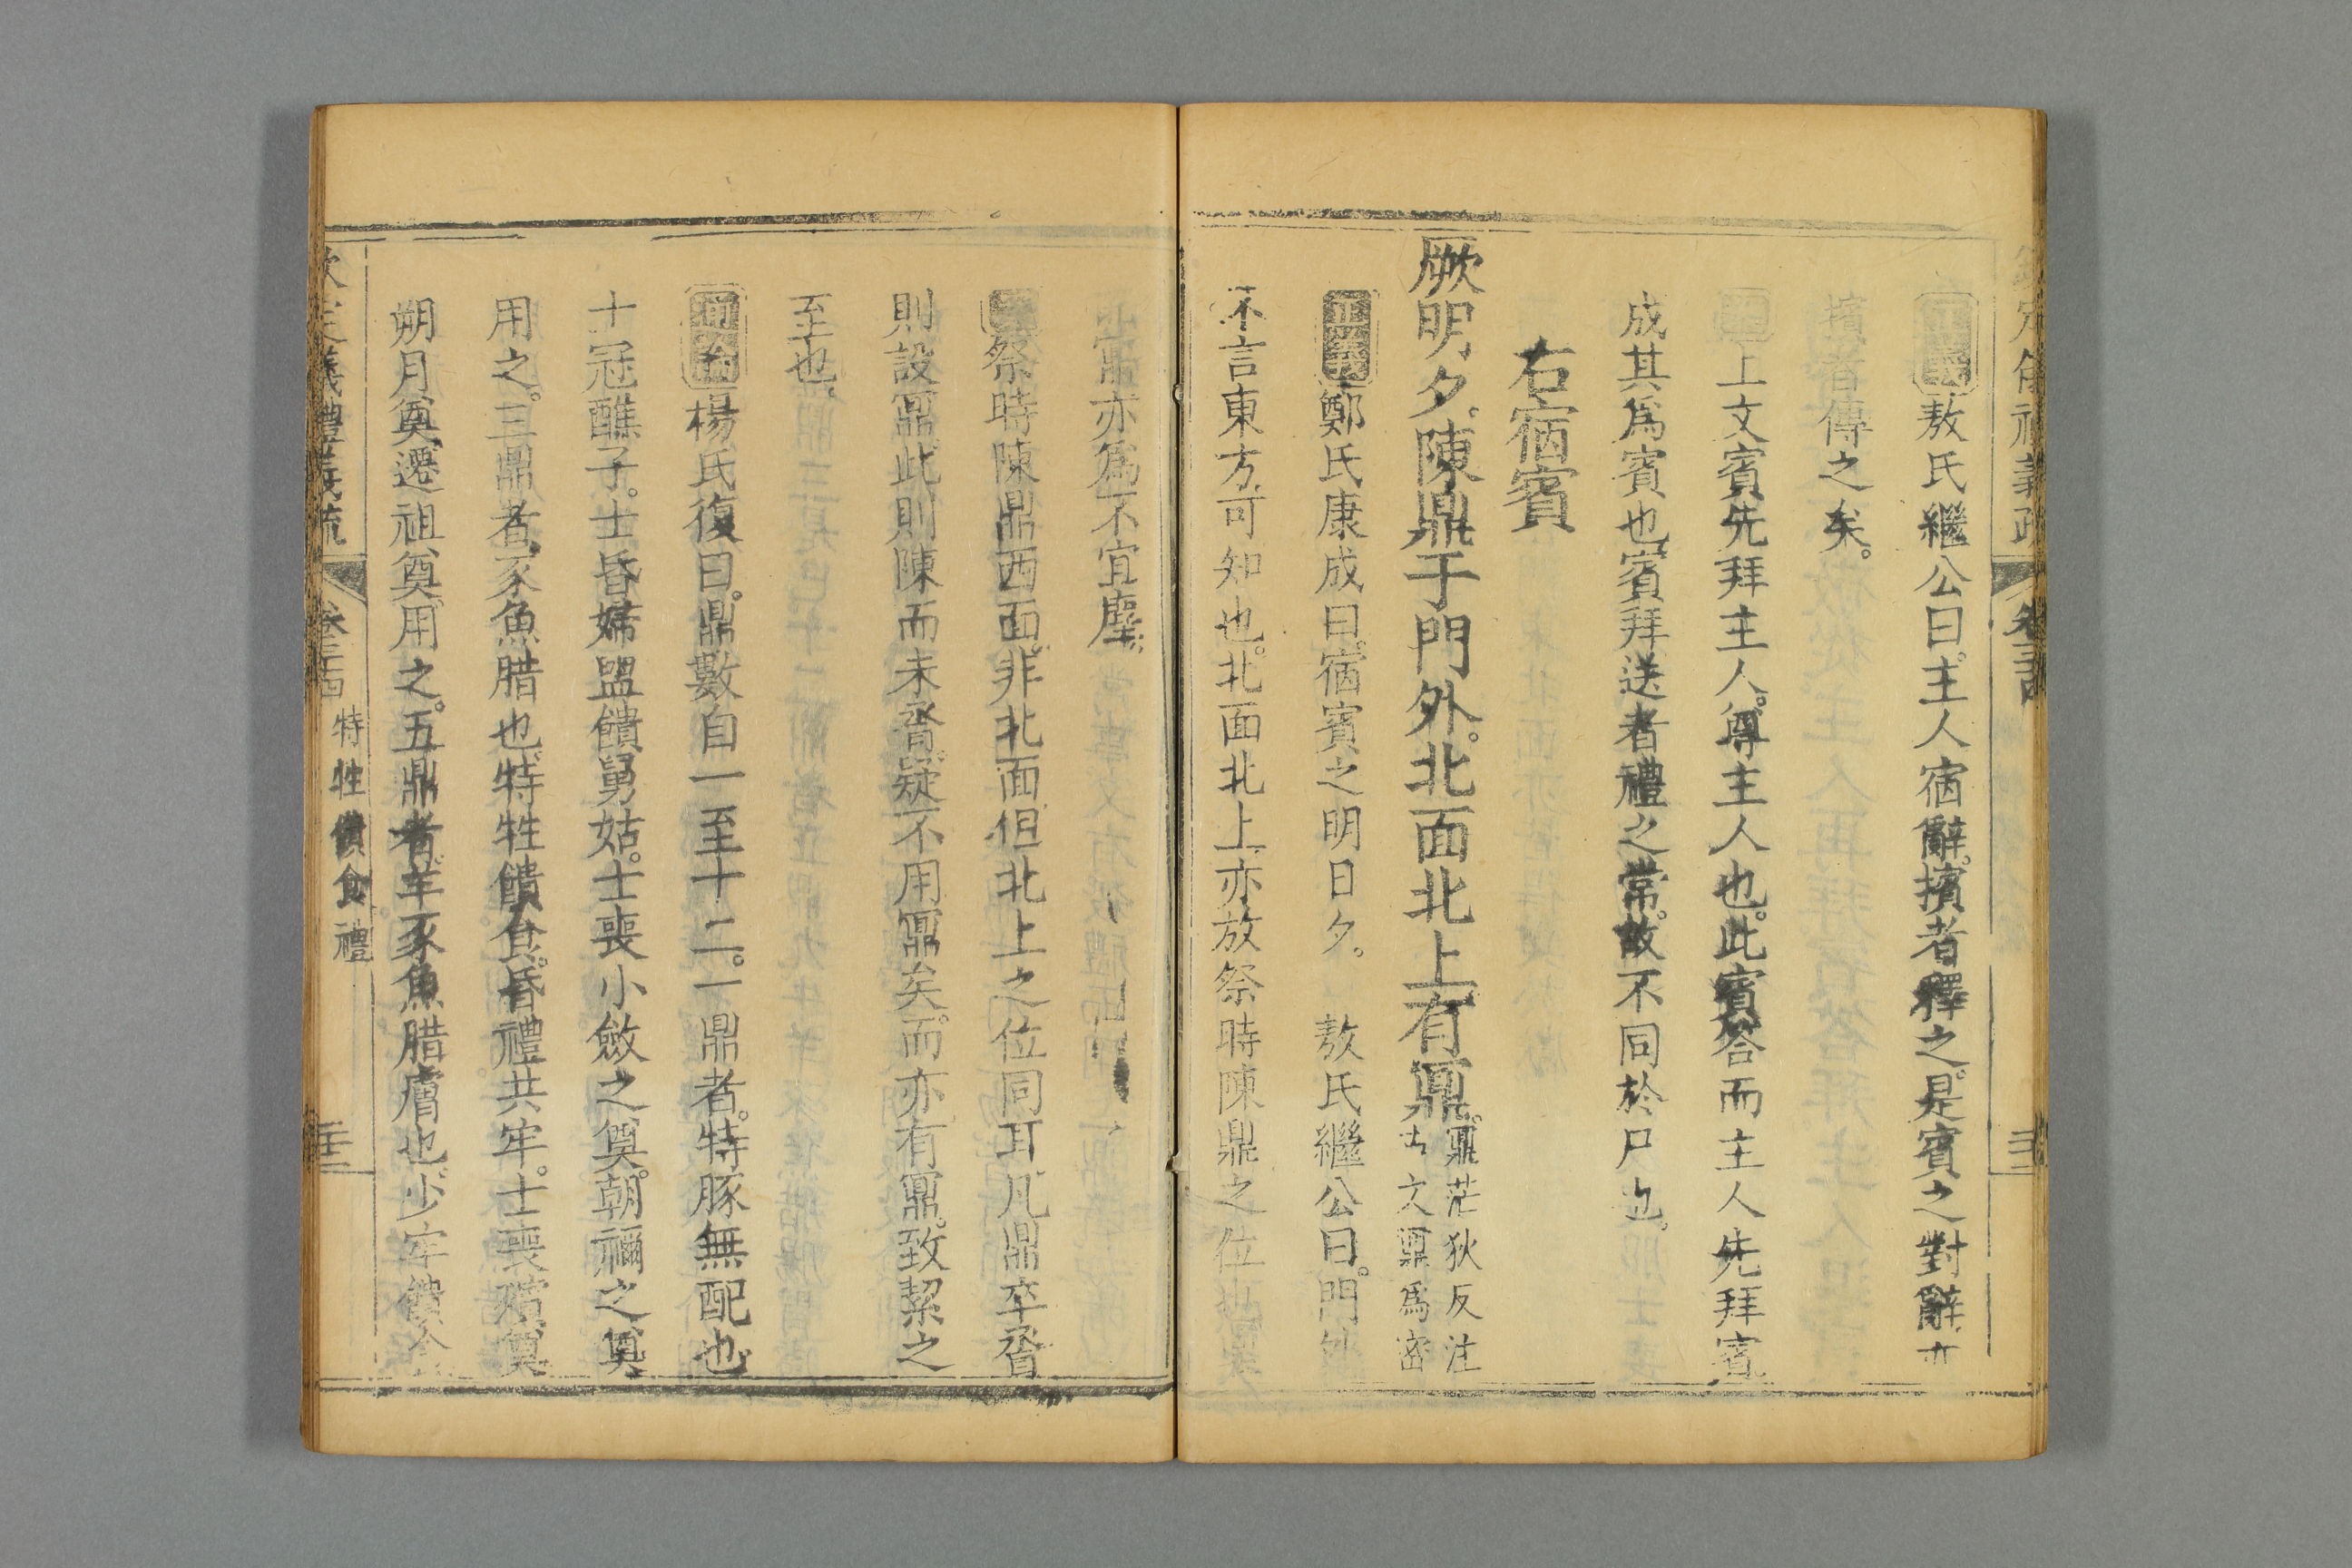 正義敖氏繼公曰。主人宿辭。擯者釋之。是賓之對辭亦
擯者傳之矣。
上文賓先拜主人。尊主人也。此賓答而主人先拜賓
成其爲賓也。賓拜送者禮之常。故不同於尸也。
右宿賓
厥明夕。陳鼎于門外。北面北上。有鼏。
鼏茫狄反注
古文鼏爲密
正義鄭氏康成曰。宿賓之明日夕。 敖氏繼公曰。門外
不言東方。可知也。北面北上。亦放祭時陳鼎之位也
鼎亦爲不宜塵
祭時陳鼎西面。非北面。但北上之位同耳。凡鼎卒脀
則設鼏。此則陳而未脀。疑不用鼏矣。而亦有鼏。致絜之
至也。
通論楊氏復曰。鼎數自一至十二。一鼎者。特豚無配也
士冠醮子。士昏婦盥饋舅姑。士喪小斂之奠。朝禰之奠
用之。三鼎者。豕魚腊也。特牲饋食。昏禮共牢。士喪殯奠
朔月奠。遷祖奠。用之。五鼎者。羊豕魚腊膚也。少牢饋食
欽定儀禮義疏 特牲饋食禮